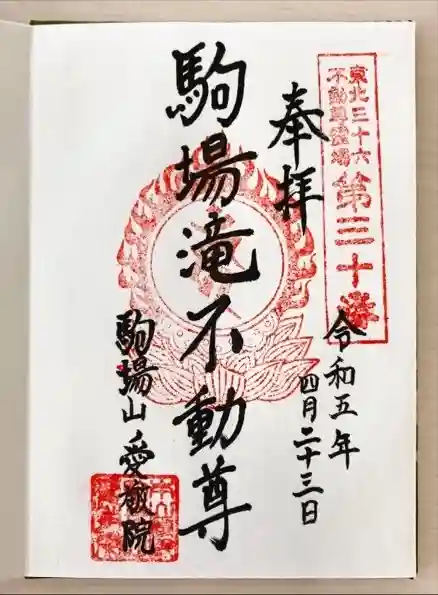 東北三十六
不動尊霊場
第三十番
奉拝
令和五年
四月二十三日
駒場滝不動尊
駒場山愛敬院